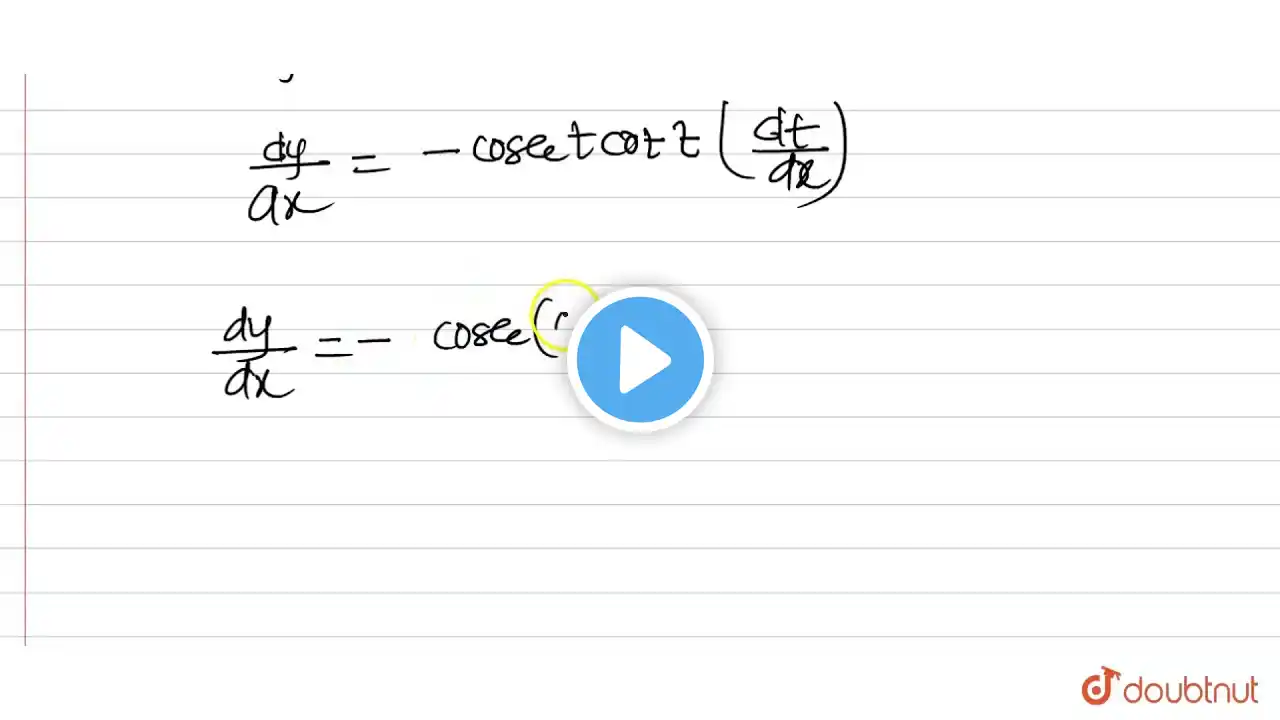 dy/dx = - cosec t cot t (dt/dx)
dy/dx = - cosec(
doubtnut